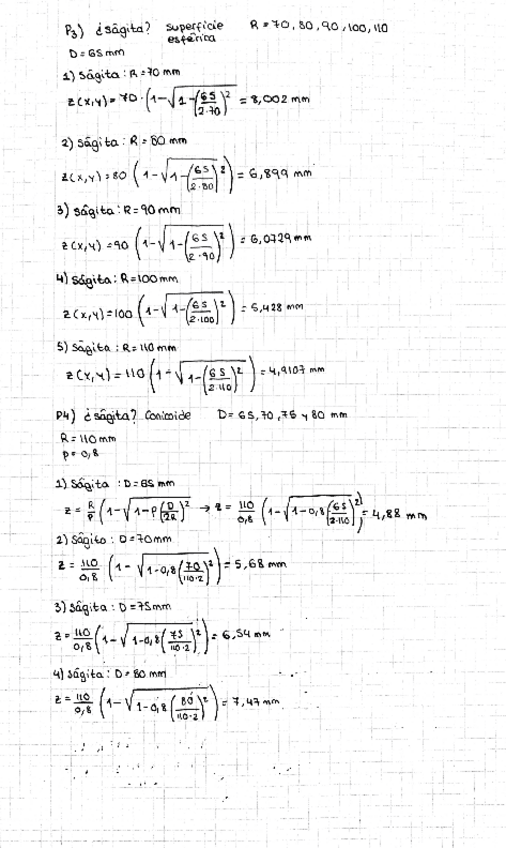 P3) ¿ságita? superficie esférica R = 70, 80, 90, 100, 110
D = 65 mm
1) Ságita : R = 70 mm
z(x,y) = 70 · (1 - √(1 - (65/2·70)²) = 8,002 mm
2) Ságita : R = 80 mm
z(x,y) = 80 (1 - √(1 - (65/2·80)²)) = 6,899 mm
3) Ságita : R = 90 mm
z(x,y) = 90 (1 - √(1 - (65/2·90)²)) = 6,0729 mm
4) Ságita : R = 100 mm
z(x,y) = 100 (1 - √(1 - (65/2·100)²)) = 5,428 mm
5) Ságita : R = 110 mm
z(x,y) = 110 (1 - √(1 - (65/2·110)²)) = 4,9107 mm
P4) ¿ságita? Conicoide D = 65, 70, 75 y 80 mm
R = 110 mm
p = 0,8
1) Ságita : D = 65 mm
z = R/p (1 - √(1 - p(D/2R)²) → z = 110/0,8 (1 - √(1 - 0,8(65/2·110)²)) = 4,88 mm
2) Ságita : D = 70 mm
z = 110/0,8 (1 - √(1 - 0,8(70/110·2)²)) = 5,68 mm
3) Ságita : D = 75 mm
z = 110/0,8 (1 - √(1 - 0,8(75/110·2)²)) = 6,54 mm
4) Ságita : D = 80 mm
z = 110/0,8 (1 - √(1 - 0,8(80/110·2)²)) = 7,47 mm